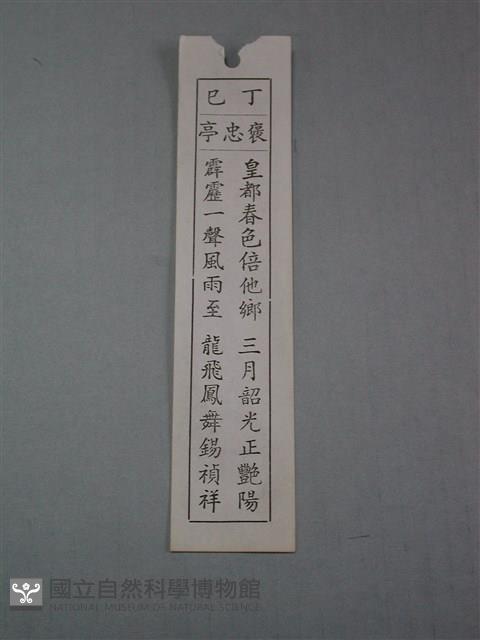 丁巳
褒忠亭
皇都春色倍他鄉 三月韶光正艷陽
霹靂一聲風雨至 龍飛鳳舞錫禎祥
國立自然科學博物館
NATIONAL MUSEUM OF NATURAL SCIENCE